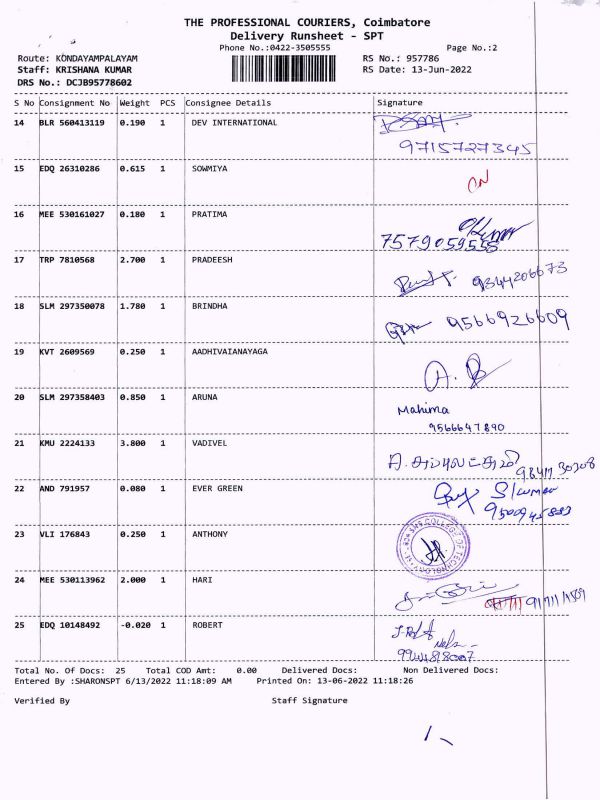 THE PROFESSIONAL COURIERS, Coimbatore
Delivery Runsheet - SPT
Phone No.:0422-3505555 Page No.:2
Route: KONDAYAMPALAYAM RS No.: 957786
Staff: KRISHANA KUMAR RS Date: 13-Jun-2022
DRS No.: DCJB95778602
S No Consignment No Weight PCS Consignee Details Signature
14 BLR 560413119 0.190 1 DEV INTERNATIONAL
9715727345
15 EDQ 26310286 0.615 1 SOWMIYA
ON
16 MEE 530161027 0.180 1 PRATIMA
7579059555
17 TRP 7810568 2.700 1 PRADEESH
9344206673
18 SLM 297350078 1.780 1 BRINDHA
9566926609
19 KVT 2609569 0.250 1 AADHIVAIANAYAGA
20 SLM 297358403 0.850 1 ARUNA
Mahima
9566647890
21 KMU 2224133 3.800 1 VADIVEL
22 AND 791957 0.080 1 EVER GREEN
23 VLI 176843 0.250 1 ANTHONY
SNS COLLEGE OF TECHNOLOGY
24 MEE 530113962 2.000 1 HARI
25 EDQ 10148492 -0.020 1 ROBERT
Total No. Of Docs: 25 Total COD Amt: 0.00 Delivered Docs: Non Delivered Docs:
Entered By :SHARONSPT 6/13/2022 11:18:09 AM Printed On: 13-06-2022 11:18:26
Verified By Staff Signature